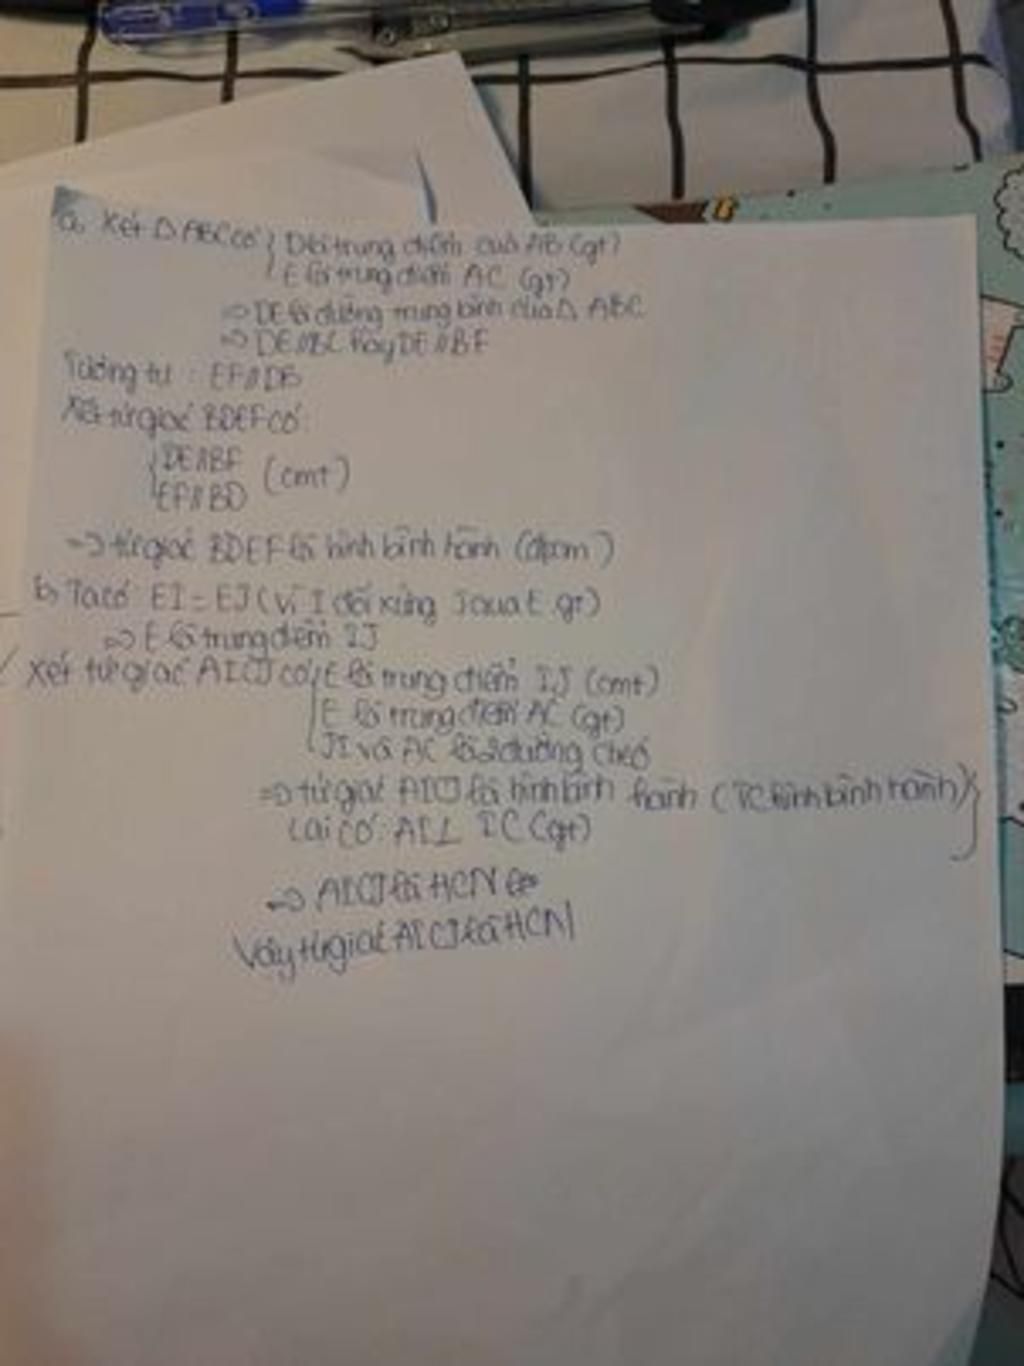 a, Xét Δ ABC có { D là trung điểm của AB (gt)
E là trung điểm AC (gt)
=> DE là đường trung bình của Δ ABC
=> DE // BC hay DE // BF
Tương tự : EF // DB
Xét tứ giác BDEF có:
{ DE // BF
EF // BD (cmt)
=> tứ giác BDEF là hình bình hành (đpcm)
b, Ta có EI = EJ (vì I đối xứng J qua E gt)
=> E là trung điểm IJ
Xét tứ giác AICJ có { E là trung điểm IJ (cmt)
E là trung điểm AC (gt)
JI và AC là 2 đường chéo
=> tứ giác AICJ là hình bình hành (TC hình bình hành) }
Lại có: AI ⊥ IC (gt)
=> AICJ là HCN
Vậy tứ giác AICJ là HCN